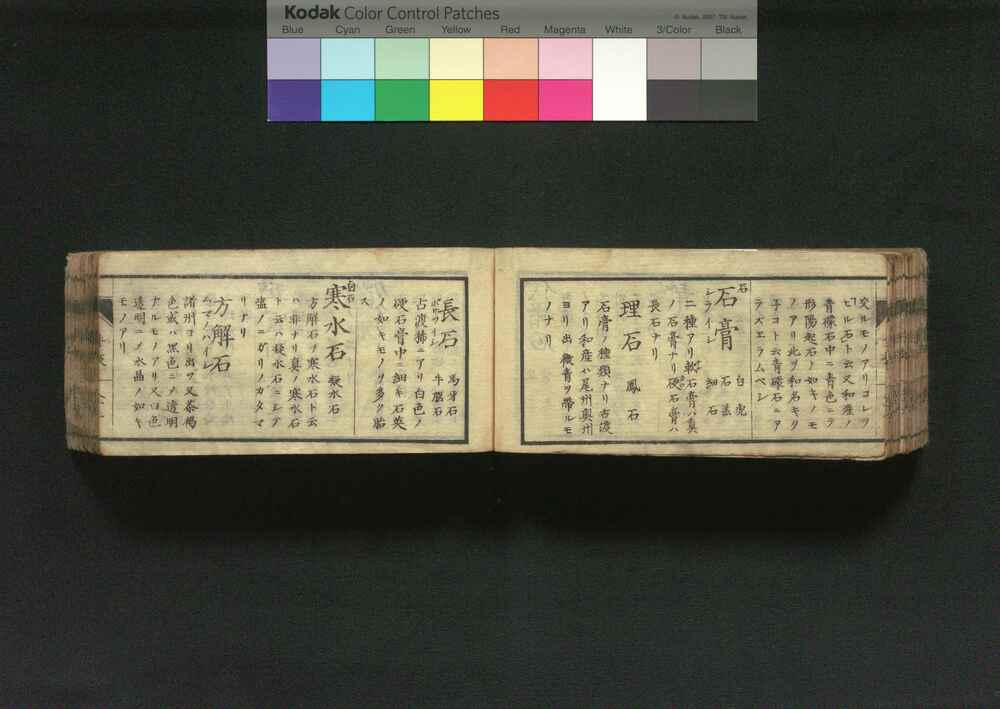 Kodak Color Control Patches
Blue Cyan Green Yellow Red Magenta White 3/Color Black
交ルモノアリコレヲ
ビル石ト云又和産ノ
青礞石中ニ青色ニテ
形陽起石ノ如キノモ
ノアリ此ヲ和名キリ
子コト云青礞石ニア
ラズエラムベシ
石
石膏 白虎
シライシ 石羔
細石
二種アリ軟石膏ハ真
ノ石膏ナリ硬石膏ハ
長石ナリ
理石 鳳石
石膏ノ種類ナリ古渡
アリ和産ハ尾州奥州
ヨリ出微青ヲ帯ルモ
ノナリ
長石 馬牙石
牛腦石
古渡稀ニアリ白色ノ
硬石膏中ニ細キ石英
ノ如キモノノリ多ク貼
ス
白石
寒水石 鞕水石
方解石ノ寒水石ト云
ハ非ナリ真ノ寒水石
ト云ハ鞕水石ニシテ
塩ノニガリノカタマ
リナリ
方解石
諸州ヨリ出ヅ又茶褐
色或ハ黒色ニノ透明
ナルモノアリ又白色
透明ニノ水晶ノ如キ
モノアリ